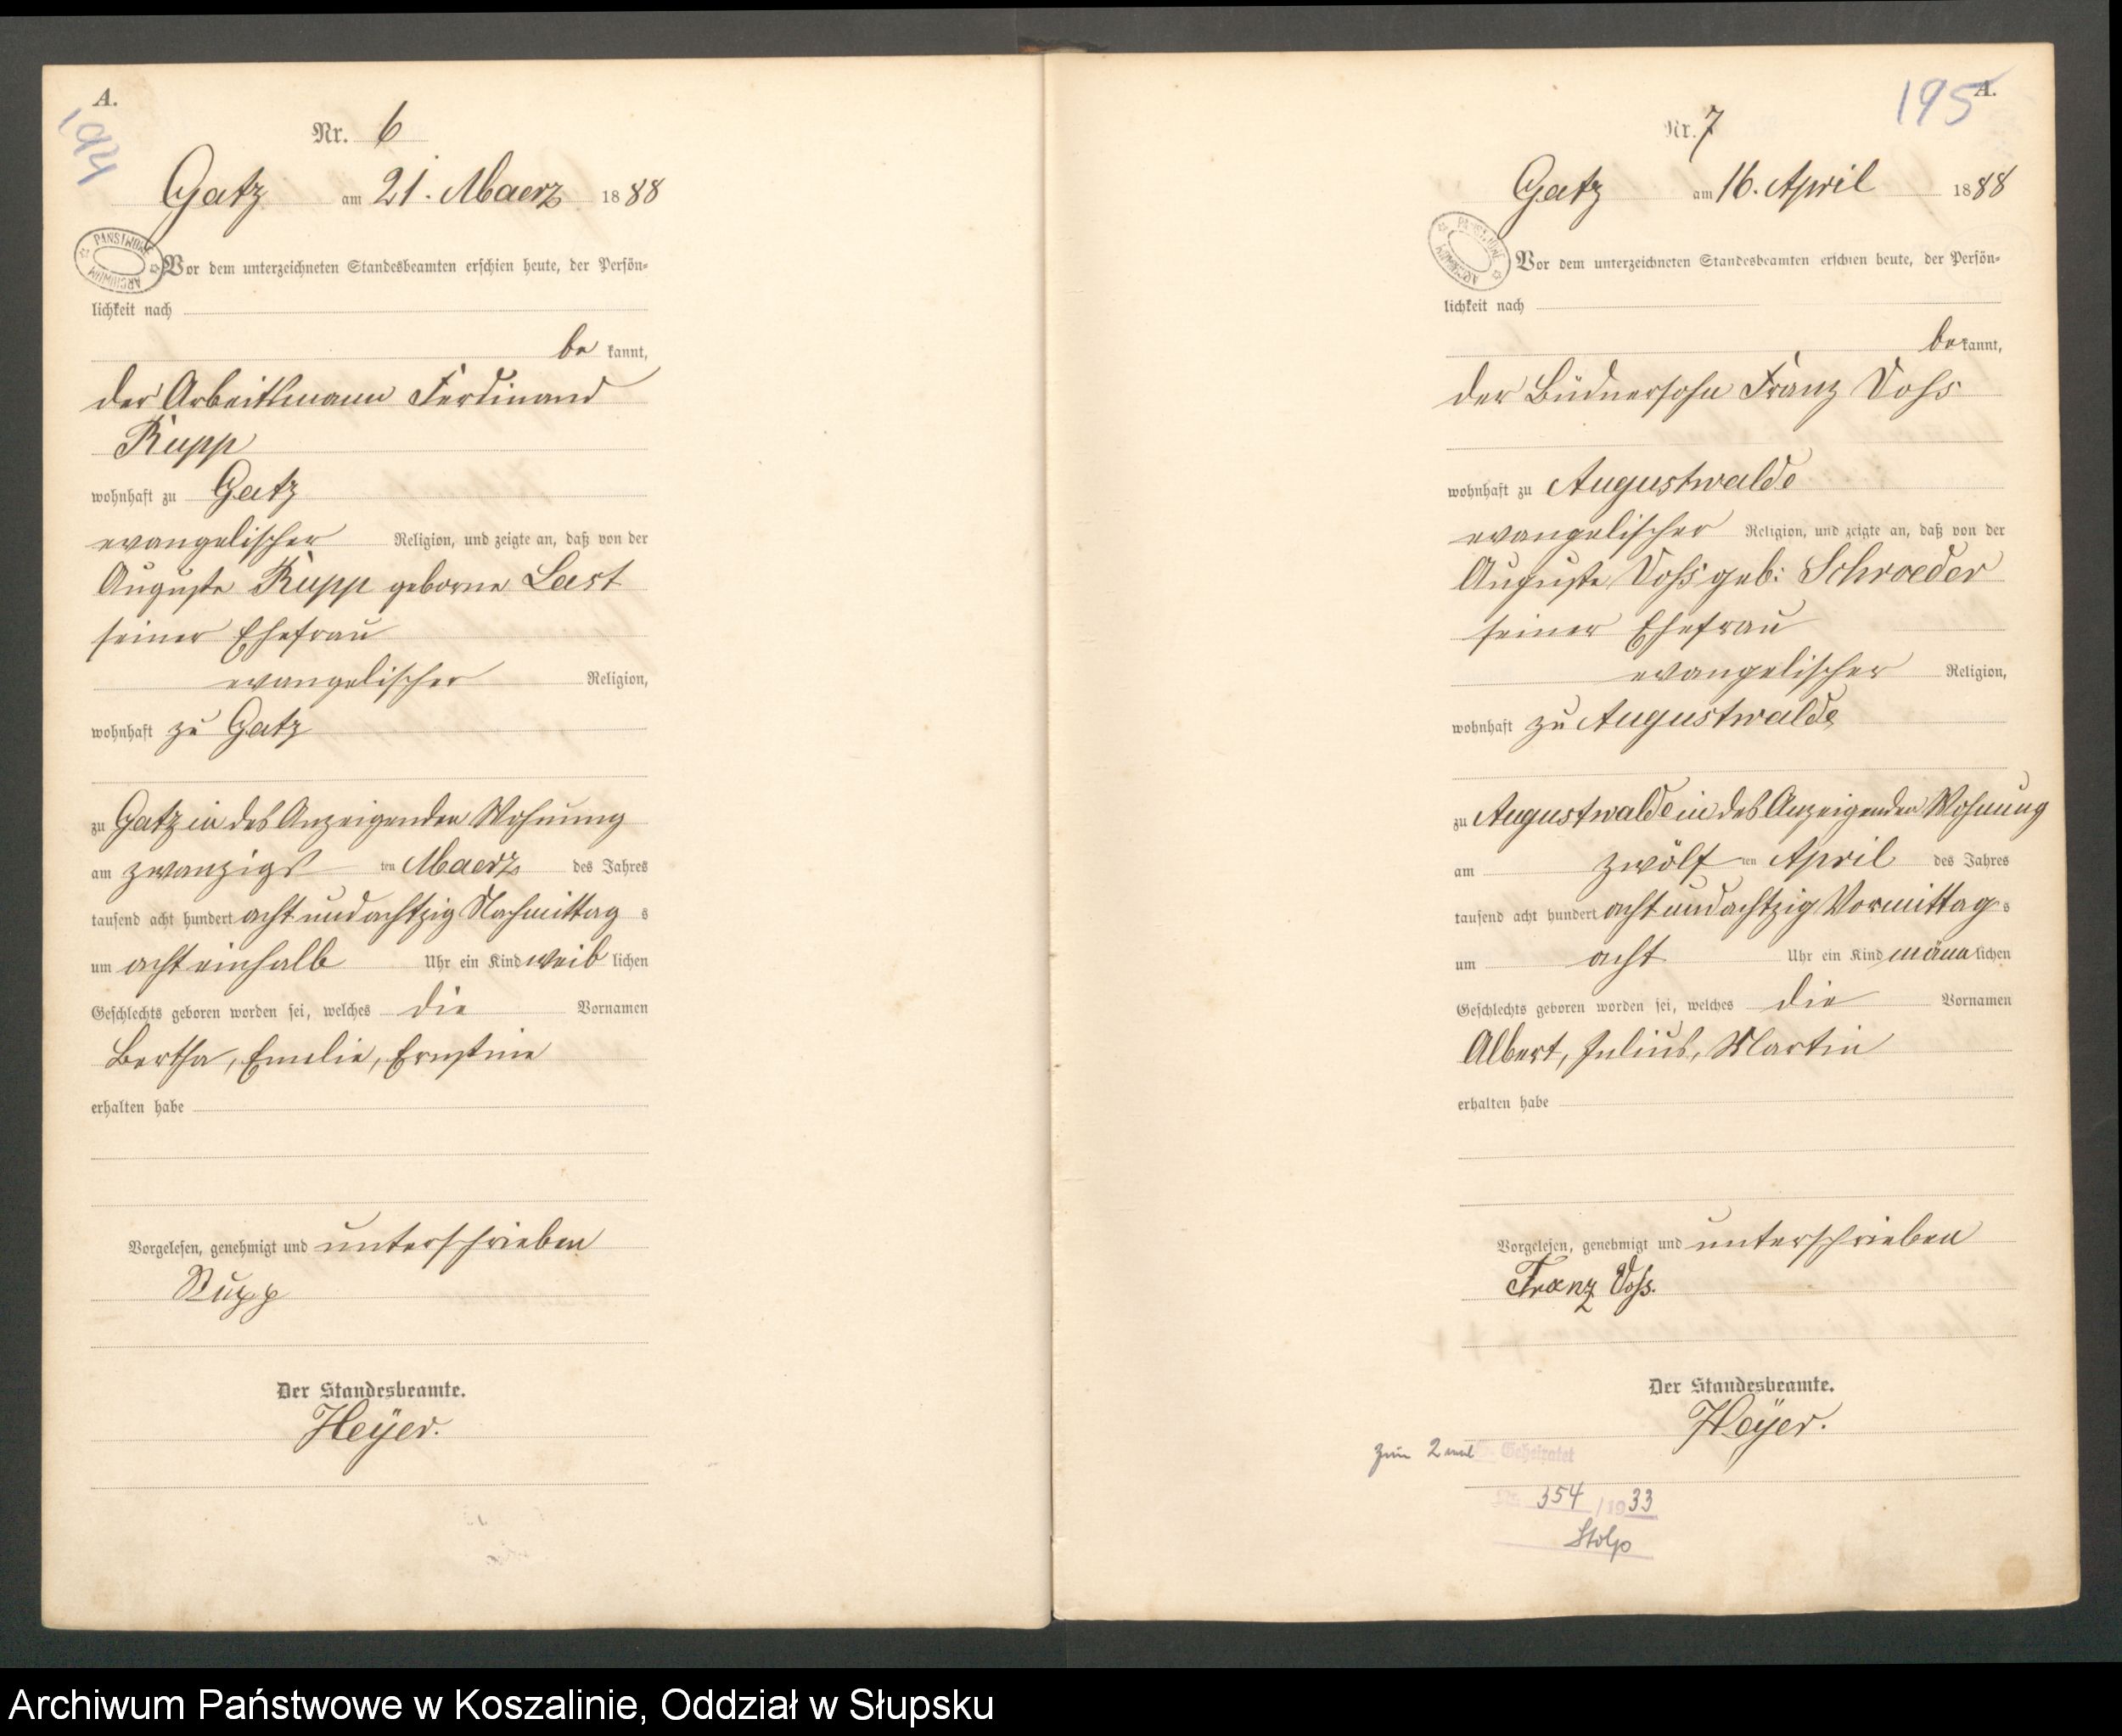 A.
194
Nr. 6
Gatz am 21. Maerz 1888
PAŃSTWOWE ARCHIWUM
Vor dem unterzeichneten Standesbeamten erschien heute, der Persön-
lichkeit nach
be kannt,
der Arbeitsmann Ferdinand
Rupp
wohnhaft zu Gatz
evangelischer Religion, und zeigte an, daß von der
Auguste Rupp geborne
seiner Ehefrau
evangelischer Religion,
wohnhaft zu Gatz
zu Gatz in des Anzeigenden Wohnung
am zwanzigst ten Maerz des Jahres
tausend acht hundert acht und achtzig Nachmittag s
um acht einhalb Uhr ein Kind weib lichen
Geschlechts geboren worden sei, welches die Vornamen
Bertha, Emilie, Ernstine
erhalten habe
Vorgelesen, genehmigt und unterschrieben
Rupp
Der Standesbeamte.
Heÿer.
195
A.
Nr. 7
Gatz am 16. April 1888
PAŃSTWOWE ARCHIWUM
Vor dem unterzeichneten Standesbeamten erschien heute, der Persön-
lichkeit nach
be kannt,
der Büdnersohn Franz Voss
wohnhaft zu Augustwalde
evangelischer Religion, und zeigte an, daß von der
Auguste Voss geb: Schroeder
seiner Ehefrau
evangelischer Religion,
wohnhaft zu Augustwalde
zu Augustwalde in des Anzeigenden Wohnung
am zwölf ten April des Jahres
tausend acht hundert acht und achtzig Vormittag s
um acht Uhr ein Kind männ lichen
Geschlechts geboren worden sei, welches die Vornamen
Albert, Julius, Martin
erhalten habe
Vorgelesen, genehmigt und unterschrieben
Franz Voss.
Der Standesbeamte.
Heÿer.
zum 2 mal Geheiratet
Nr. 354 /1933
Stolp
Archiwum Państwowe w Koszalinie, Oddział w Słupsku